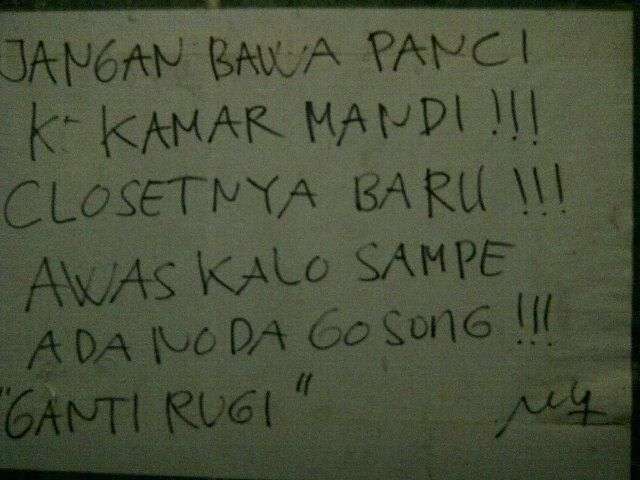 JANGAN BAWA PANCI
K- KAMAR MANDI !!!
CLOSETNYA BARU !!!
AWAS KALO SAMPE
ADA NODA GOSONG !!!
"GANTI RUGI"